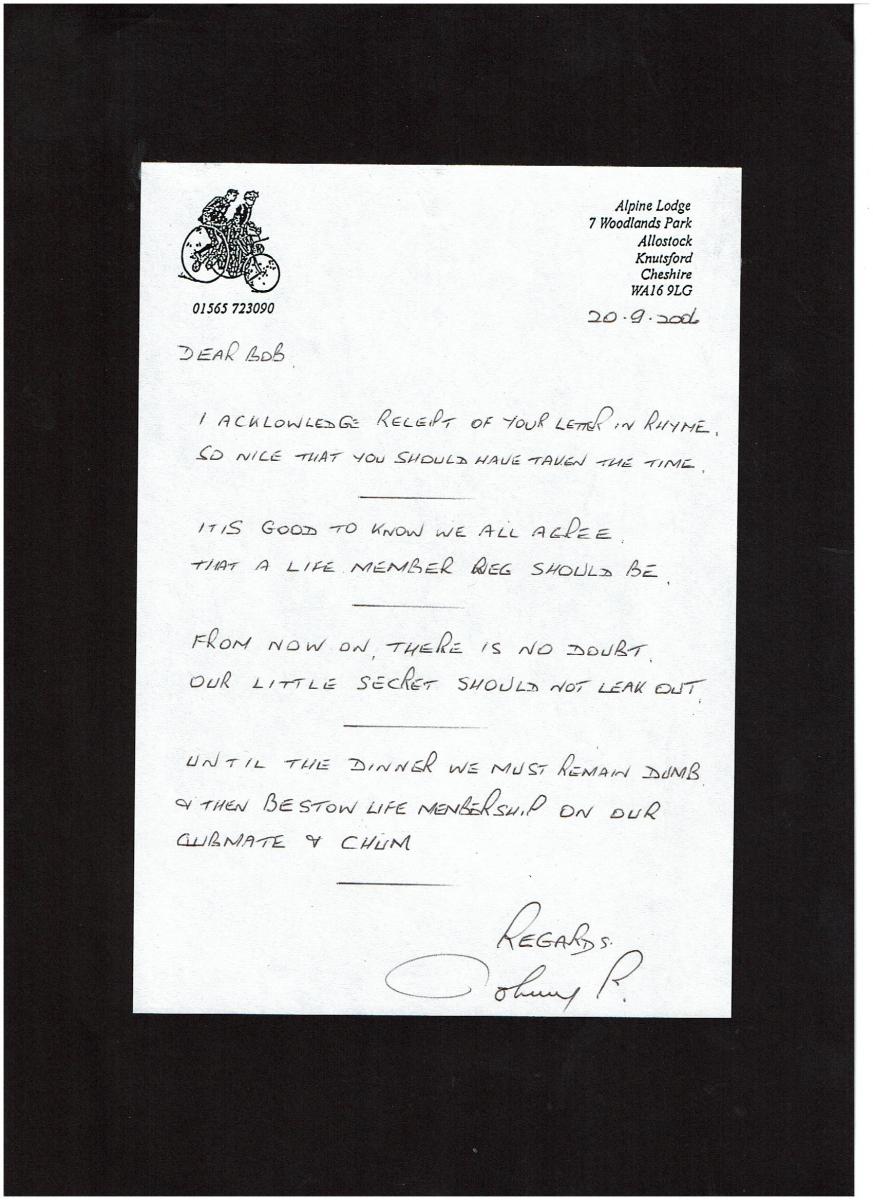 Alpine Lodge
7 Woodlands Park
Allostock
Knutsford
Cheshire
WA16 9LG
01565 723090
20.9.2006
DEAR BOB.
I ACKLOWLEDGE RECEIPT OF YOUR LETTER IN RHYME.
SO NICE THAT YOU SHOULD HAVE TAKEN THE TIME.
IT IS GOOD TO KNOW WE ALL AGREE.
THAT A LIFE MEMBER REG SHOULD BE.
FROM NOW ON, THERE IS NO DOUBT.
OUR LITTLE SECRET SHOULD NOT LEAK OUT.
UNTIL THE DINNER WE MUST REMAIN DUMB
& THEN BESTOW LIFE MEMBERSHIP ON OUR
CLUBMATE & CHUM
REGARDS.
Johnny R.